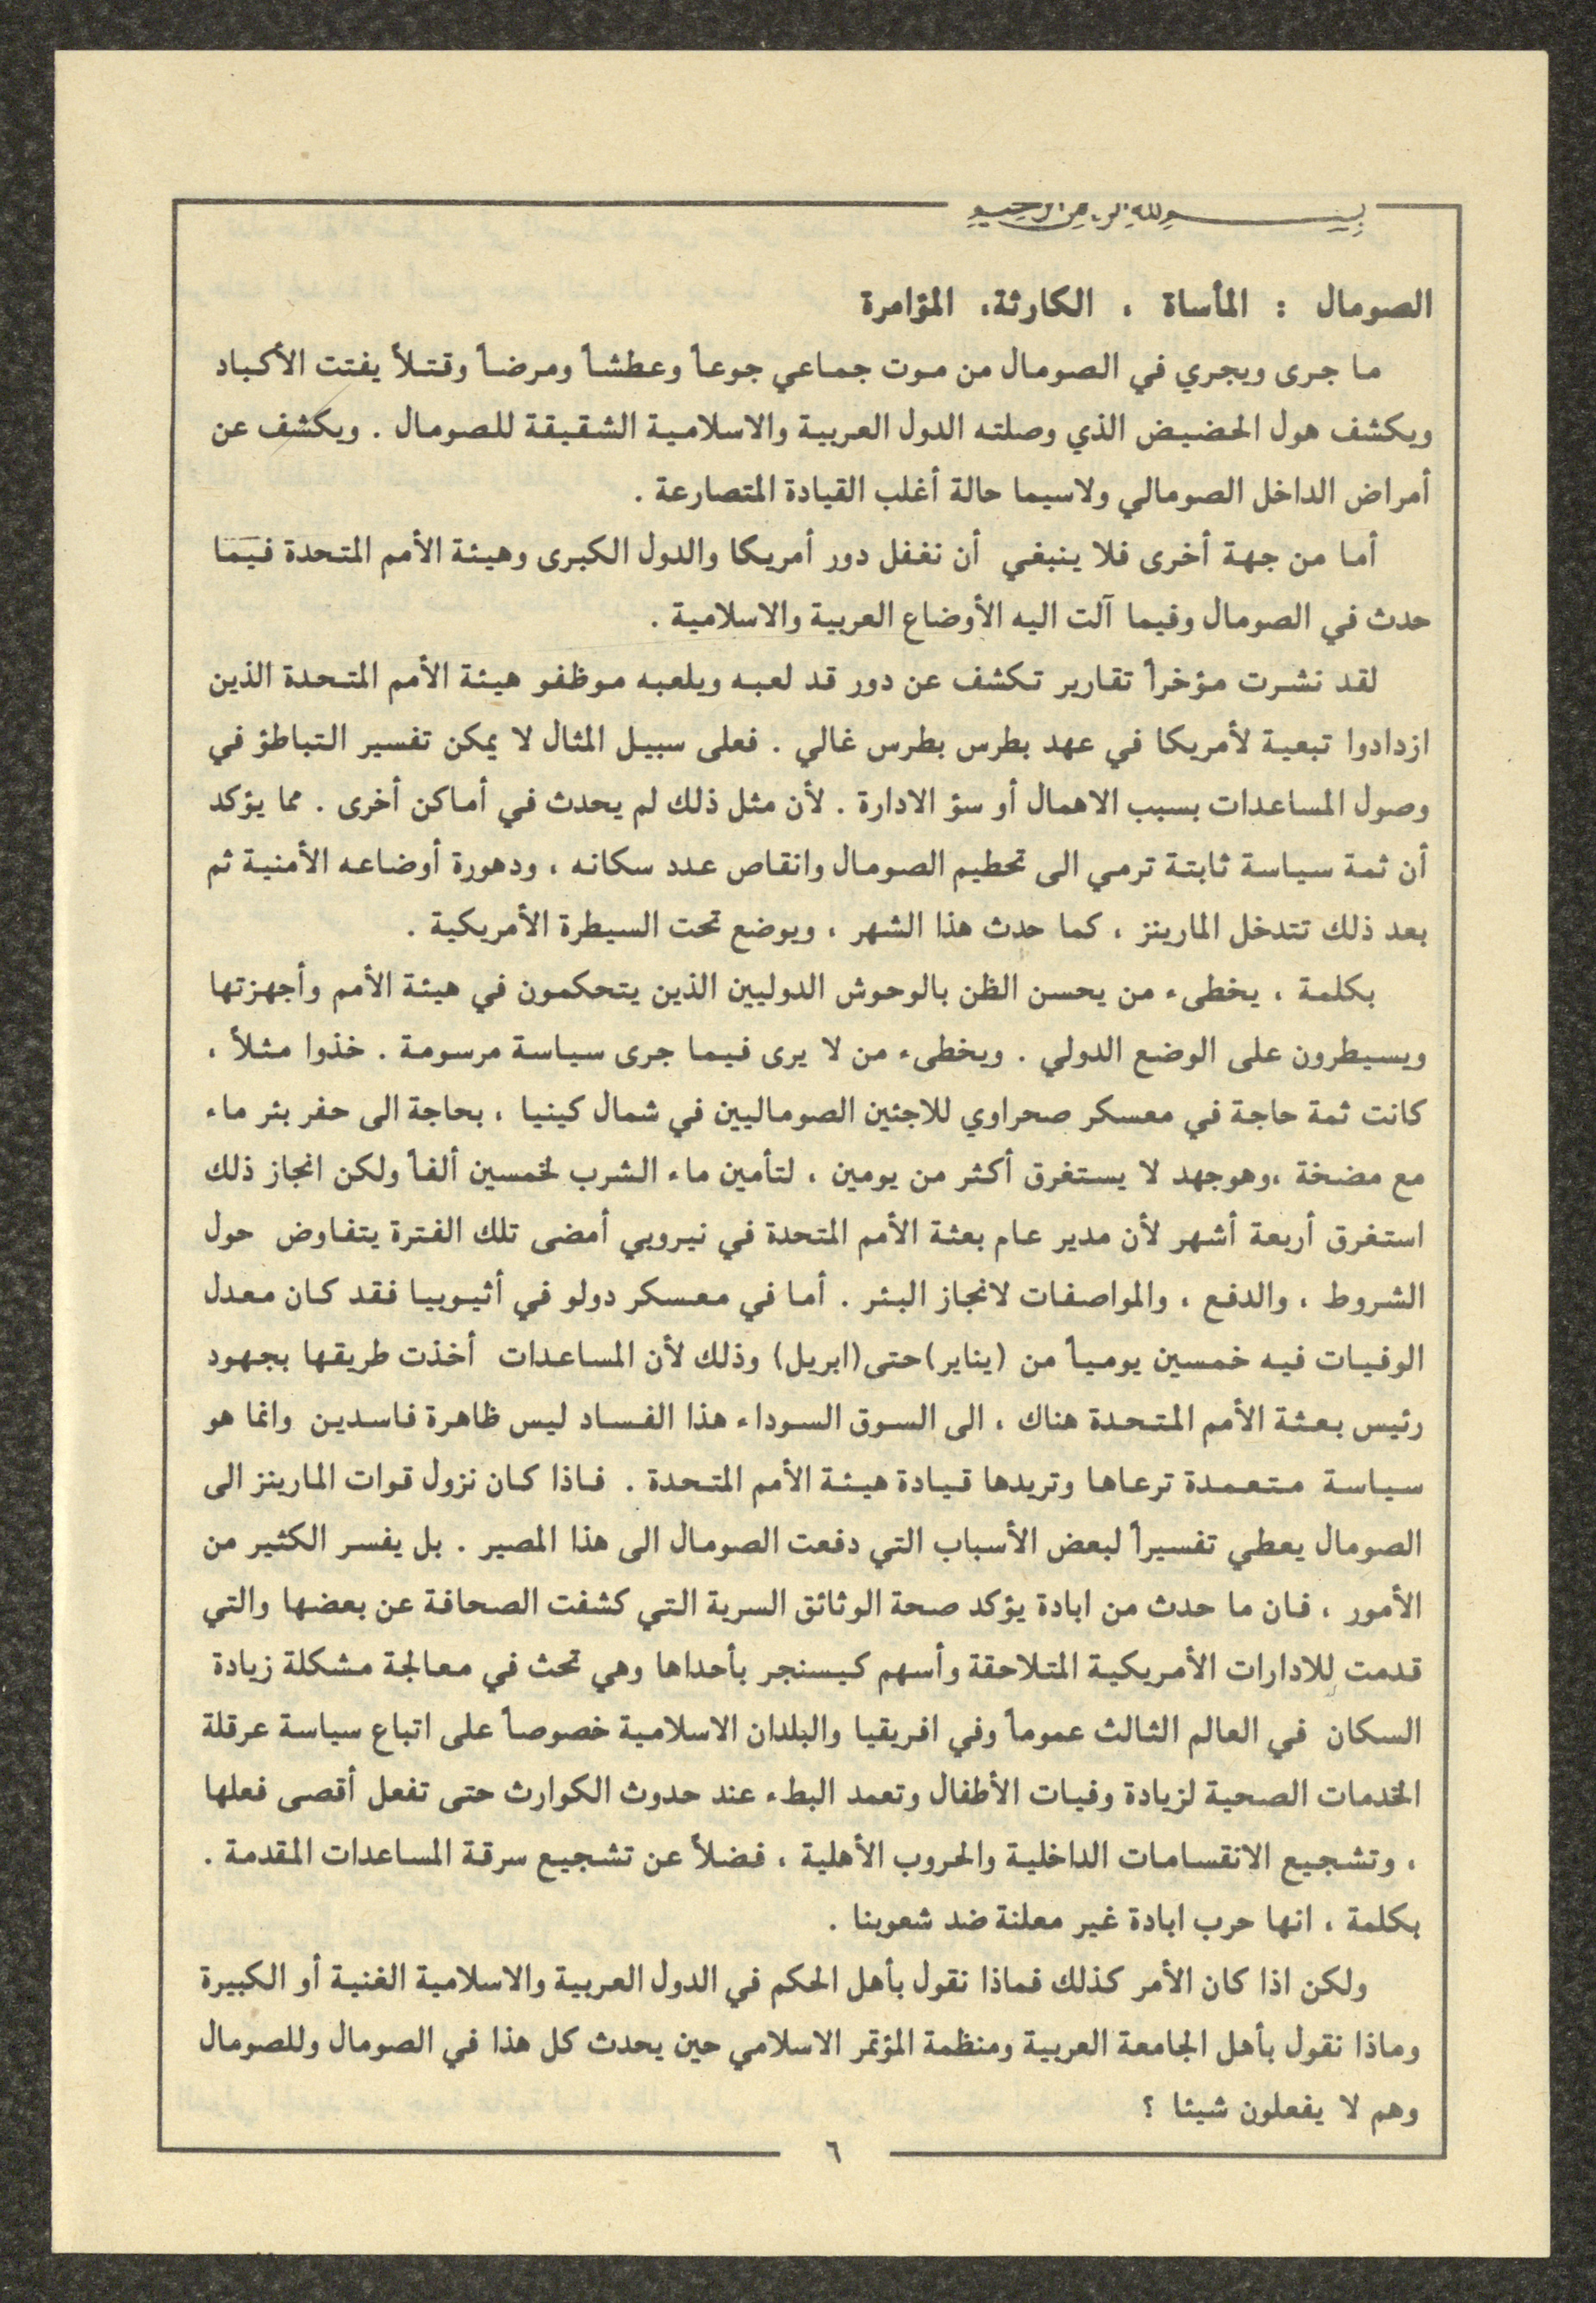 بسم الله الرحمن الرحيم
الصومال : المأساة ، الكارثة، المؤامرة
ما جرى ويجري في الصومال من موت جماعي جوعاً وعطشاً ومرضاً وقتلاً يفتت الأكباد
ويكشف هول الحضيض الذي وصلته الدول العربية والاسلامية الشقيقة للصومال . ويكشف عن
أمراض الداخل الصومالي ولاسيما حالة أغلب القيادة المتصارعة .
أما من جهة أخرى فلا ينبغي أن نغفل دور أمريكا والدول الكبرى وهيئة الأمم المتحدة فيما
حدث في الصومال وفيما آلت اليه الأوضاع العربية والاسلامية .
لقد نشرت مؤخراً تقارير تكشف عن دور قد لعبه ويلعبه موظفو هيئة الأمم المتحدة الذين
ازدادوا تبعية لأمريكا في عهد بطرس بطرس غالي . فعلى سبيل المثال لا يمكن تفسير التباطؤ في
وصول المساعدات بسبب الاهمال أو سؤ الادارة . لأن مثل ذلك لم يحدث في أماكن أخرى . مما يؤكد
أن ثمة سياسة ثابتة ترمي الى تحطيم الصومال وانقاص عدد سكانه ، ودهورة أوضاعه الأمنية ثم
بعد ذلك تتدخل المارينز ، كما حدث هذا الشهر ، ويوضع تحت السيطرة الأمريكية .
بكلمة ، يخطىء من يحسن الظن بالوحوش الدوليين الذين يتحكمون في هيئة الأمم وأجهزتها
ويسيطرون على الوضع الدولي . ويخطىء من لا يرى فيما جرى سياسة مرسومة . خذوا مثلاً ،
كانت ثمة حاجة في معسكر صحراوي للاجئين الصوماليين في شمال كينيا ، بحاجة الى حفر بئر ماء
مع مضخة ،وهوجهد لا يستغرق أكثر من يومين ، لتأمين ماء الشرب لخمسين ألفاً ولكن انجاز ذلك
استغرق أربعة أشهر لأن مدير عام بعثة الأمم المتحدة في نيروبي أمضى تلك الفترة يتفاوض حول
الشروط ، والدفع ، والمواصفات لانجاز البئر . أما في معسكر دولو في أثيوبيا فقد كان معدل
الوفيات فيه خمسين يومياً من (يناير)حتى(ابريل) وذلك لأن المساعدات أخذت طريقها بجهود
رئيس بعثة الأمم المتحدة هناك ، الى السوق السوداء هذا الفساد ليس ظاهرة فاسدين وانما هو
سياسة متعمدة ترعاها وتريدها قيادة هيئة الأمم المتحدة . فاذا كان نزول قوات المارينز الى
الصومال يعطي تفسيراً لبعض الأسباب التي دفعت الصومال الى هذا المصير . بل يفسر الكثير من
الأمور ، فان ما حدث من ابادة يؤكد صحة الوثائق السرية التي كشفت الصحافة عن بعضها والتي
قدمت للادارات الأمريكية المتلاحقة وأسهم كيسنجر بأحداها وهي تحث في معالجة مشكلة زيادة
السكان في العالم الثالث عموماً وفي افريقيا والبلدان الاسلامية خصوصاً على اتباع سياسة عرقلة
الخدمات الصحية لزيادة وفيات الأطفال وتعمد البطء عند حدوث الكوارث حتى تفعل أقصى فعلها
، وتشجيع الانقسامات الداخلية والحروب الأهلية ، فضلاً عن تشجيع سرقة المساعدات المقدمة .
بكلمة ، انها حرب ابادة غير معلنة ضد شعوبنا .
ولكن اذا كان الأمر كذلك فماذا نقول بأهل الحكم في الدول العربية والاسلامية الغنية أو الكبيرة
وماذا نقول بأهل الجامعة العربية ومنظمة المؤتمر الاسلامي حين يحدث كل هذا في الصومال وللصومال
وهم لا يفعلون شيئا ؟
٦